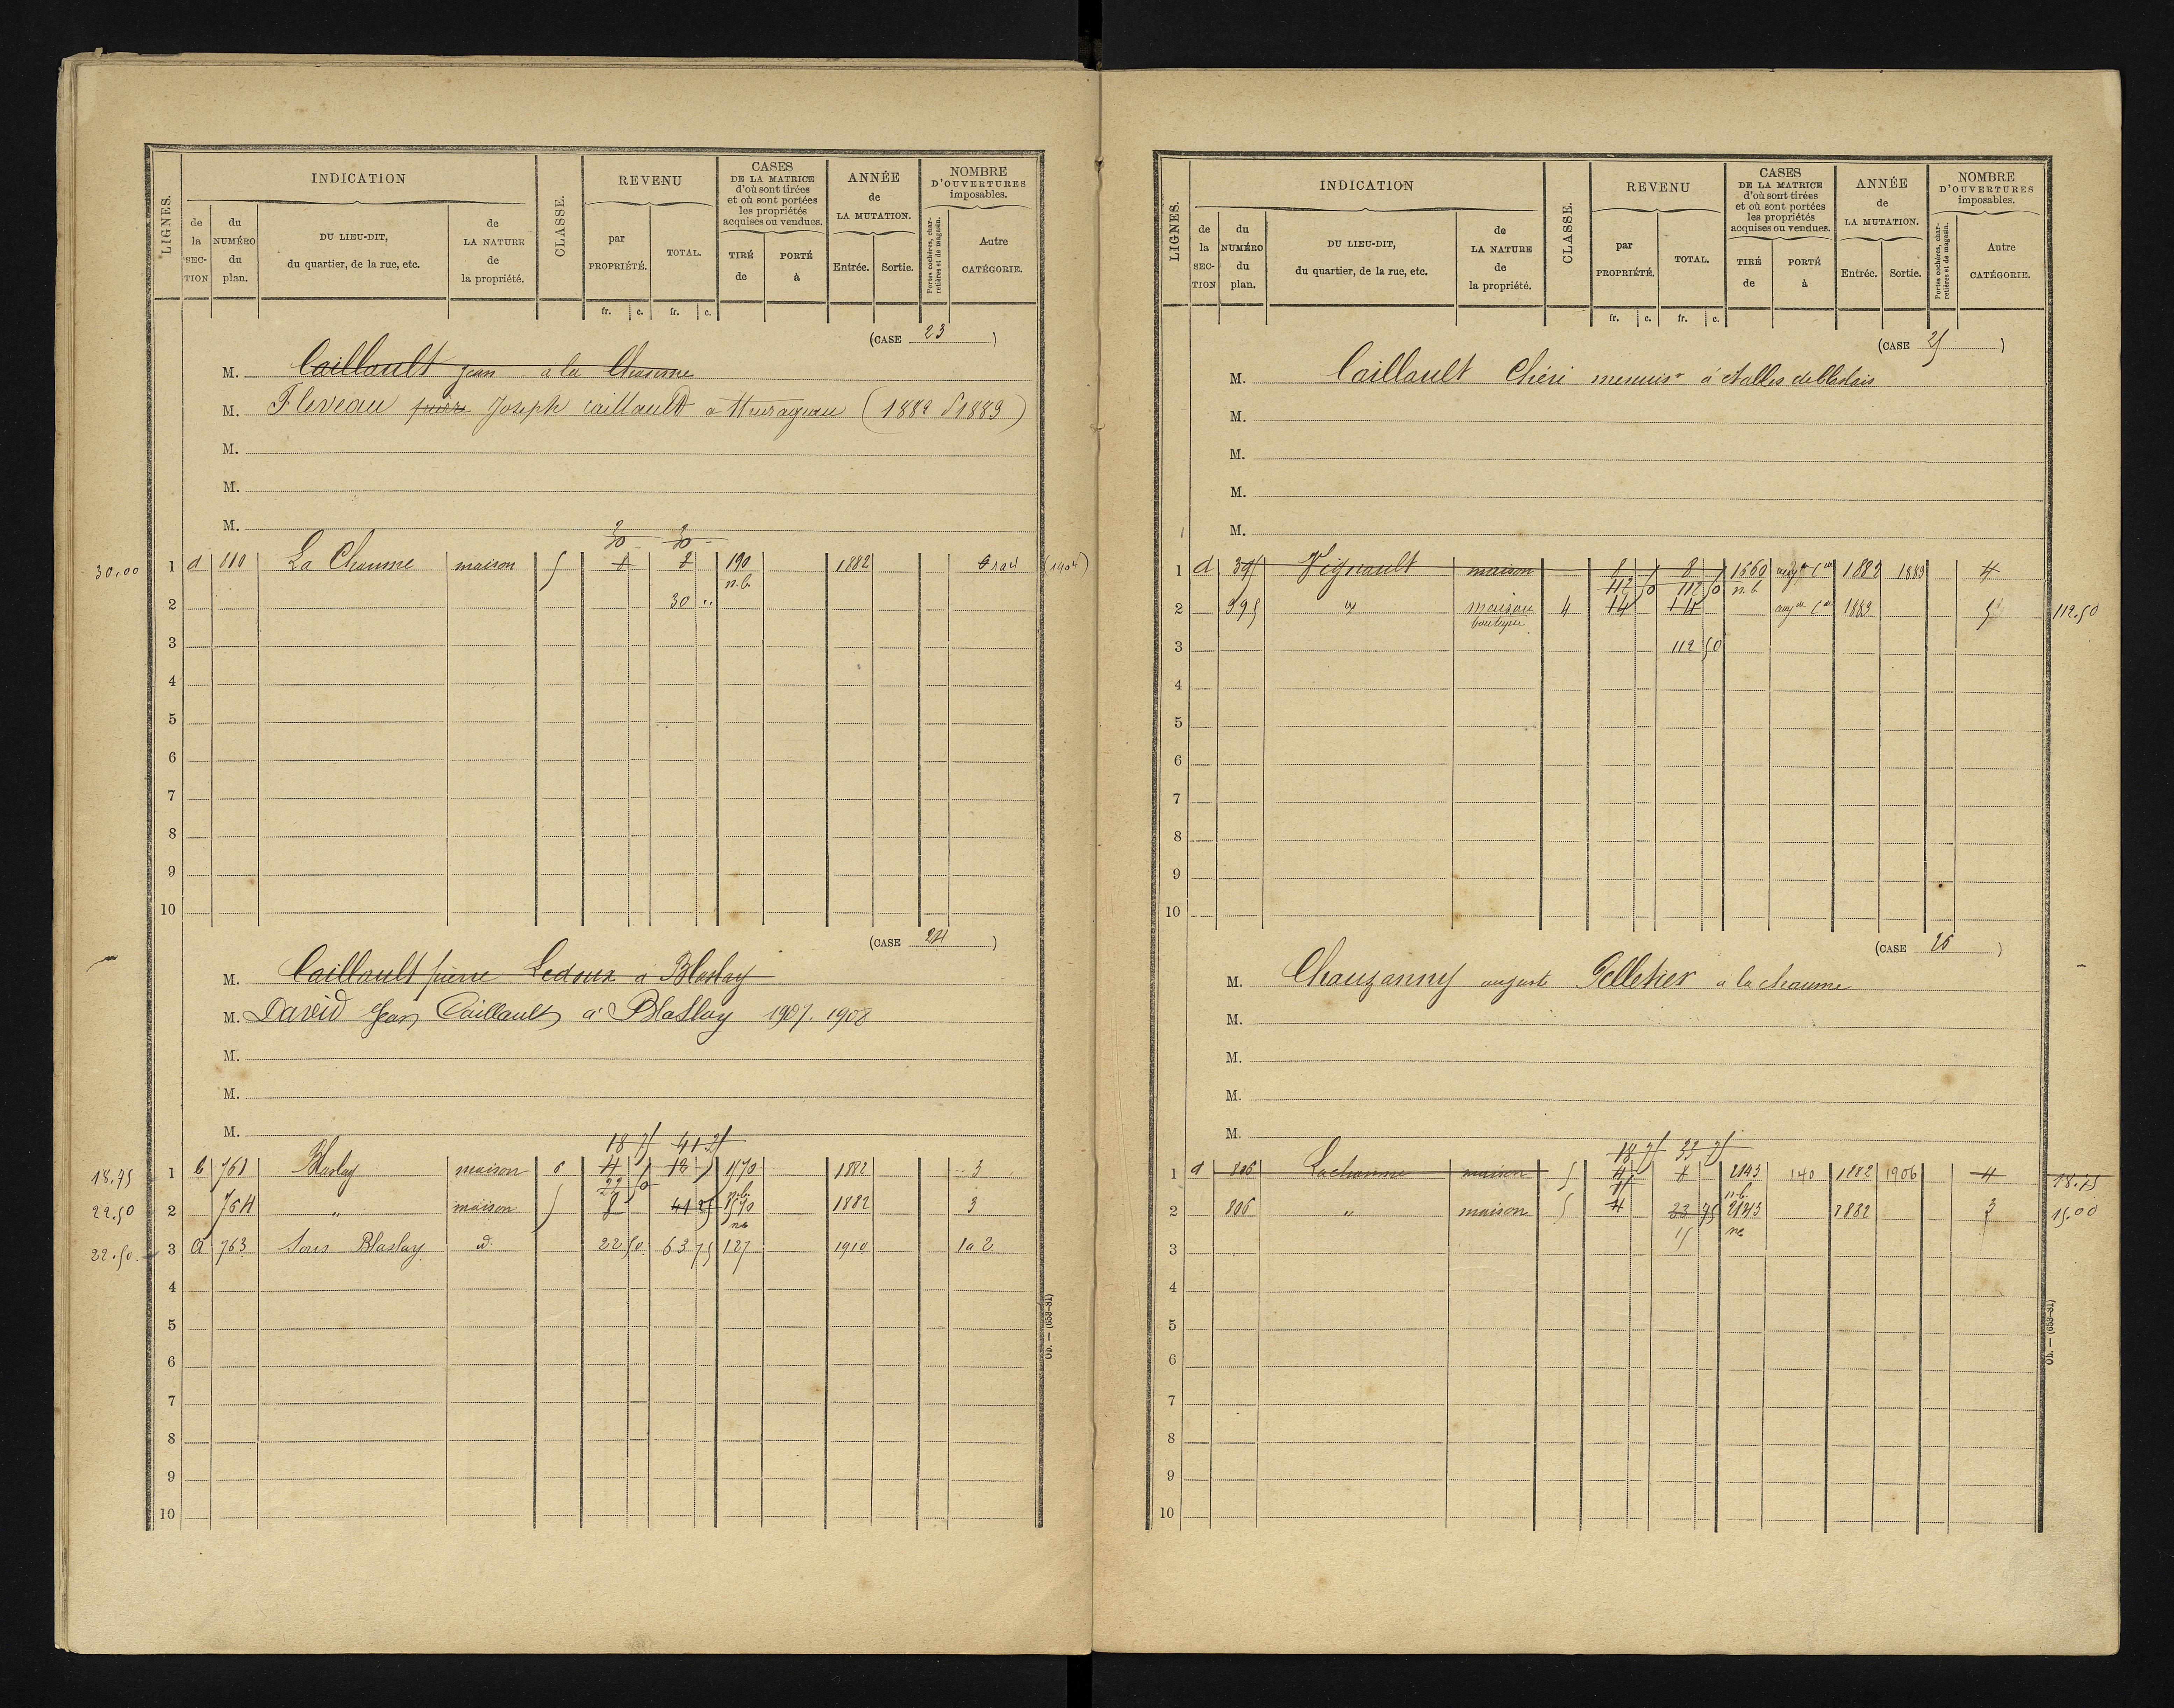 LIGNES.
INDICATION
CLASSE.
REVENU
CASES
DE LA MATRICE
d'où sont tirées
et où sont portées
les propriétés
acquises ou vendues.
ANNÉE
de
LA MUTATION.
NOMBRE
D'OUVERTURES
imposables.
de la SECTION
du NUMÉRO du plan.
DU LIEU-DIT,
du quartier, de la rue, etc.
de LA NATURE de la propriété.
par PROPRIÉTÉ.
TOTAL.
TIRÉ de
PORTÉ à
Entrée.
Sortie.
Portes cochères, charretières et de magasin.
Autre CATÉGORIE.
fr. c. fr. c.
(CASE 23)
M. Caillault Jean à la Chaume
M. Fleveau Joseph caillault a (1882 1883)
M.
M.
M.
30 30
30.00 1 d 110 La Chaume maison 5 190 1882 (1904)
n.b.
2 30 "
3
4
5
6
7
8
9
10
(CASE 24)
M. Caillault pierre Ledoux a Blaslay
M. David Jean Caillault à Blaslay 1907. 1908
M.
M.
M.
18 75 41 25
18.75 1 b 761 Blaslay maison 6 1882 3
22 50
22.50 2 764 " maison 5 8 41 25 1882 3
22.50 3 a 763 Sous Blaslay d. 22 50 63 75 127 1910 1a 2
4
5
6
7
8
9
10
Ob. — (653-81)
LIGNES.
INDICATION
CLASSE.
REVENU
CASES
DE LA MATRICE
d'où sont tirées
et où sont portées
les propriétés
acquises ou vendues.
ANNÉE
de
LA MUTATION.
NOMBRE
D'OUVERTURES
imposables.
de la SECTION
du NUMÉRO du plan.
DU LIEU-DIT,
du quartier, de la rue, etc.
de LA NATURE de la propriété.
par PROPRIÉTÉ.
TOTAL.
TIRÉ de
PORTÉ à
Entrée.
Sortie.
Portes cochères, charretières et de magasin.
Autre CATÉGORIE.
fr. c. fr. c.
(CASE 25)
M. Caillault Chéri menuisr à
M.
M.
M.
M.
1 d 395 Vignault maison 1660 1882 1883 4
112 50 112 50 n.b.
2 395 " maison 4 14 14 1883 5 112.50
boutique
3 112 50
4
5
6
7
8
9
10
(CASE 26)
M. Chauzanny auguste Pelletier a la chaume
M.
M.
M.
M.
18 75 33 75
1 d 806 Lachaume maison 5 4 8 2143 140 1882 1906 4 18.75
15 n.b.
2 806 " maison 5 4 33 75 2143 1882 3 15.00
15
3
4
5
6
7
8
9
10
Ob. — (653-81)